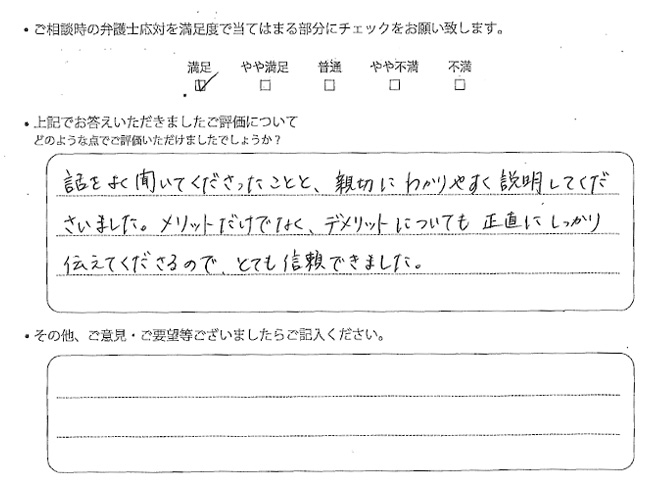 ・ご相談時の弁護士応対を満足度で当てはまる部分にチェックをお願い致します。
満足 やや満足 普通 やや不満 不満
・上記でお答えいただきましたご評価について
どのような点でご評価いただけましたでしょうか？
話をよく聞いてくださったことと、親切にわかりやすく説明してくだ
さいました。メリットだけでなく、デメリットについても正直にしっかり
伝えてくださるので、とても信頼できました。
・その他、ご意見・ご要望等ございましたらご記入ください。